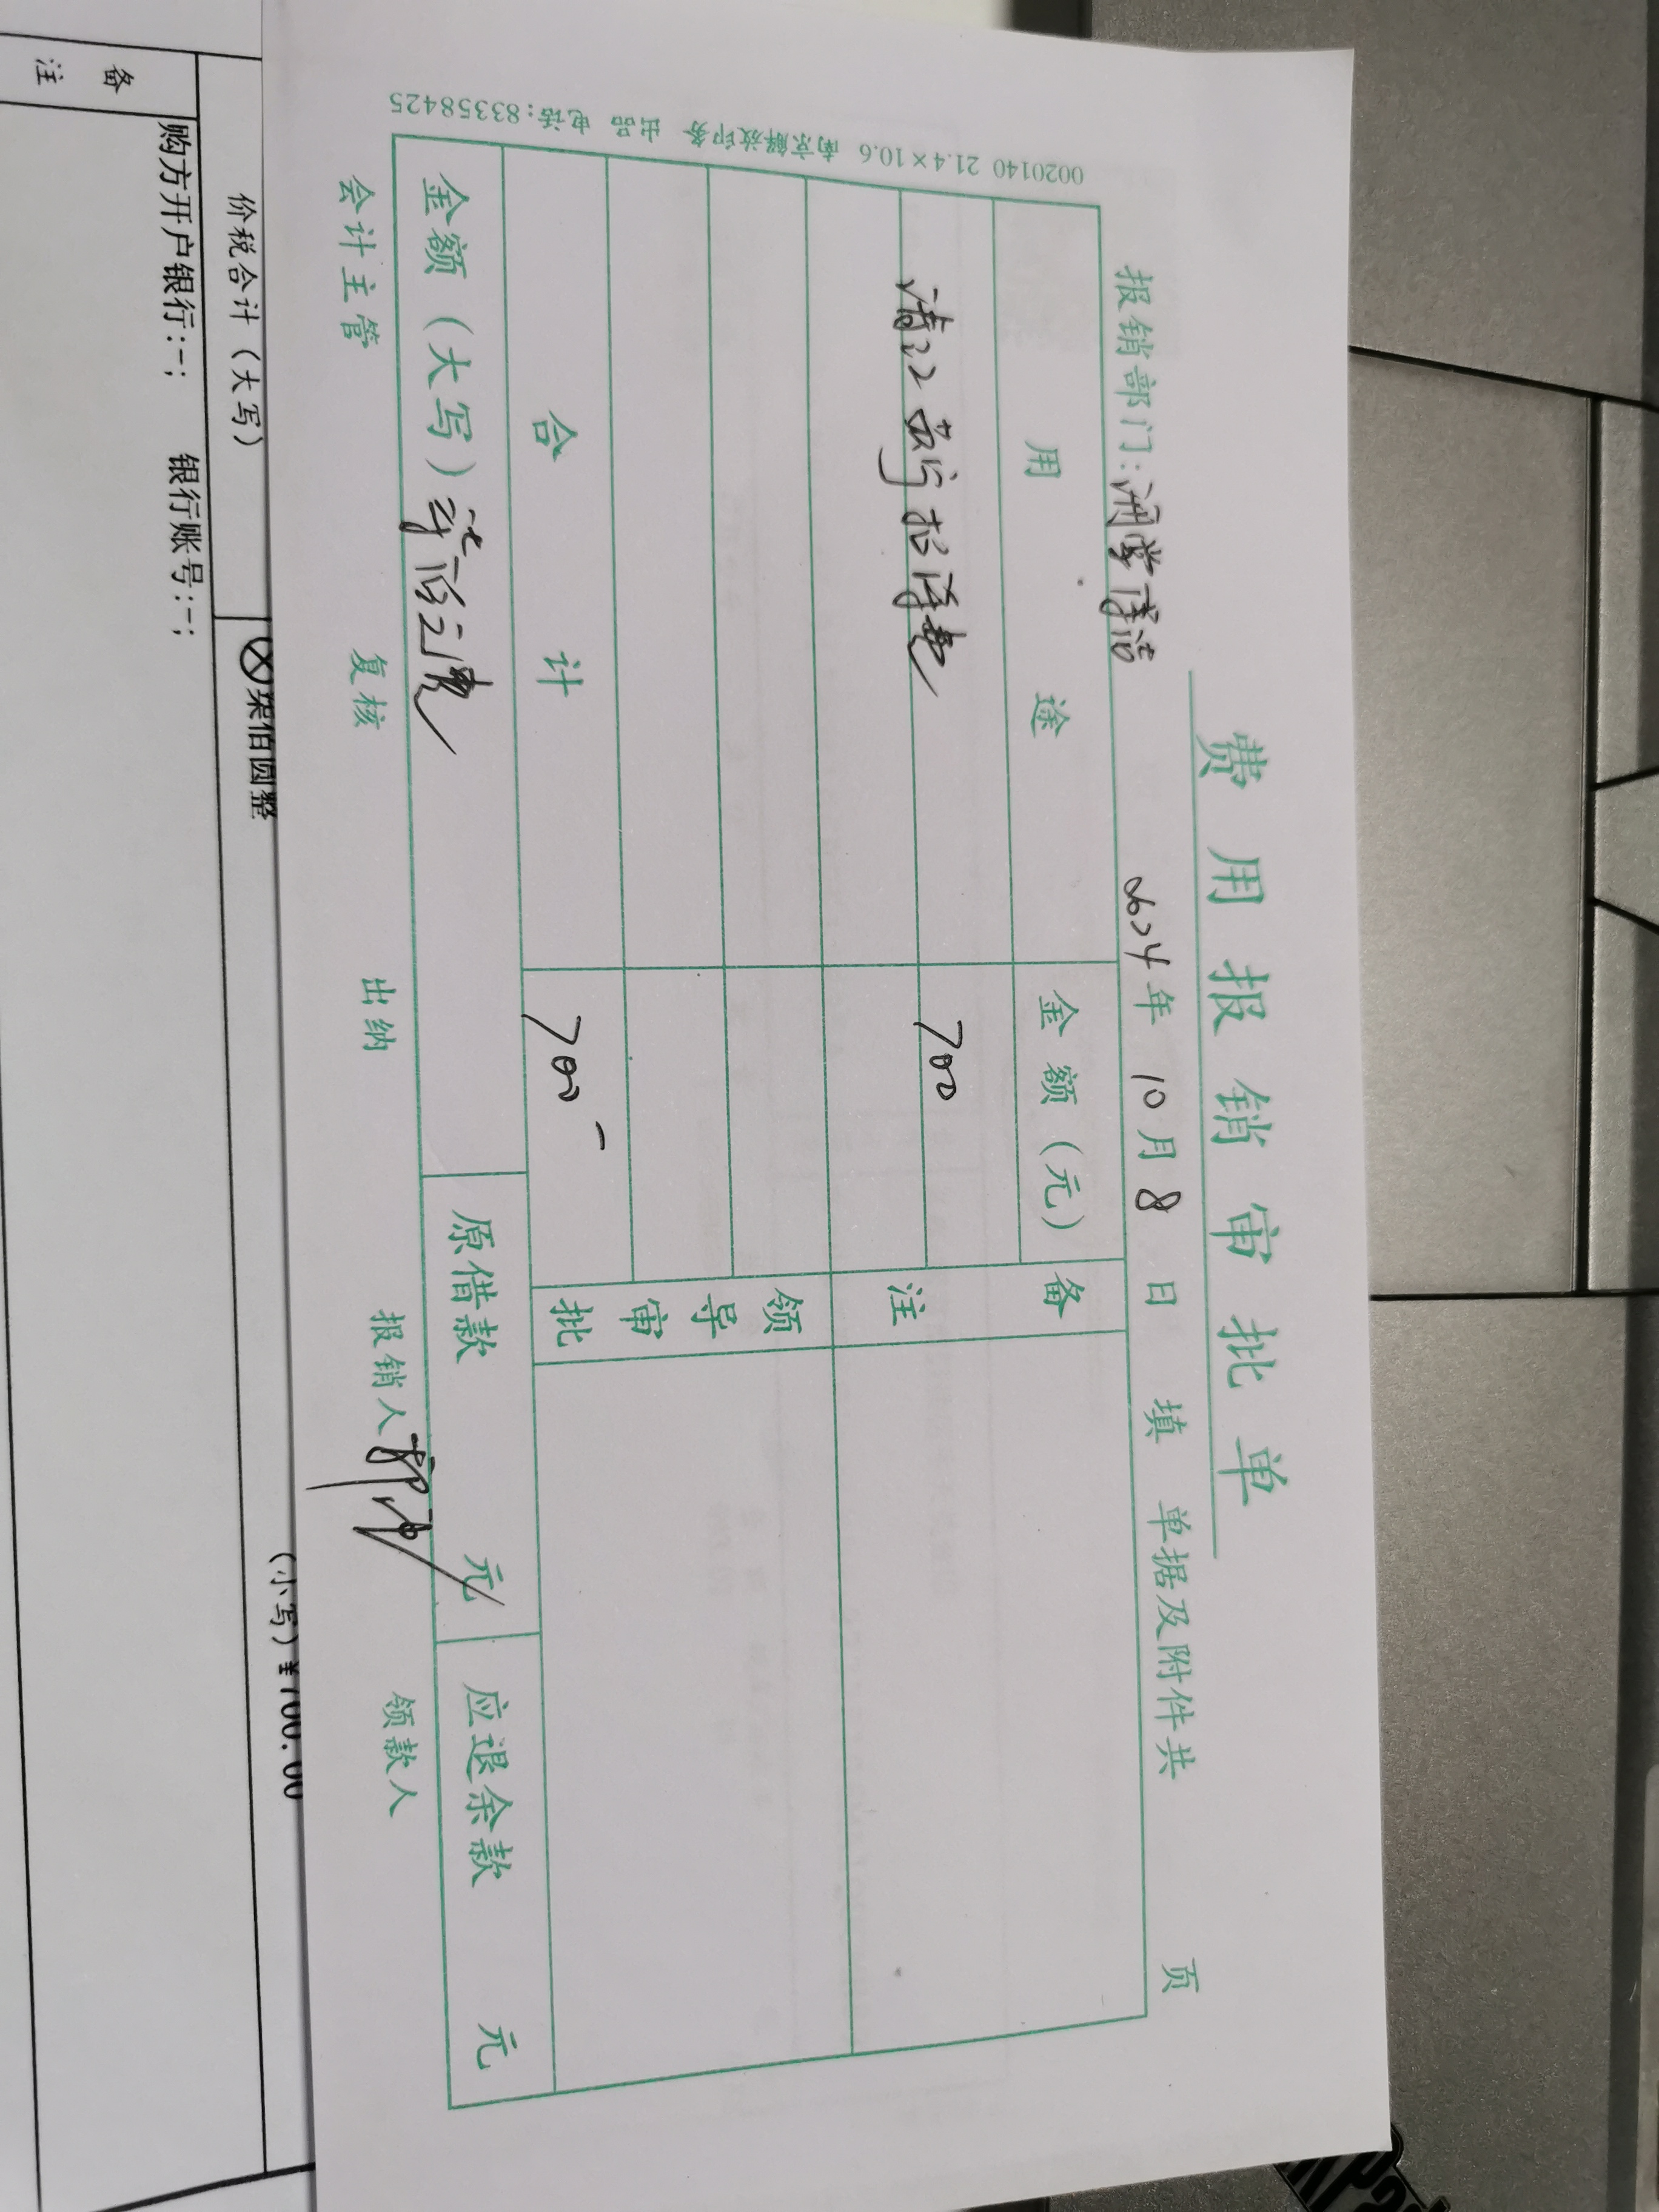 费用报销审批单
报销部门:
2024年10月8日 填 单据及附件共 页
用途 金额(元) 备注
700
领导审批
合计 700-
金额(大写) 柒佰元 原借款 元 应退余款 元
会计主管 复核 出纳 报销人 领款人
0020140 21.4×10.6 南京解放印务 出品 电话:83358425
价税合计(大写) 柒佰圆整 (小写)¥700.00
购方开户银行:-; 银行账号:-;
备注